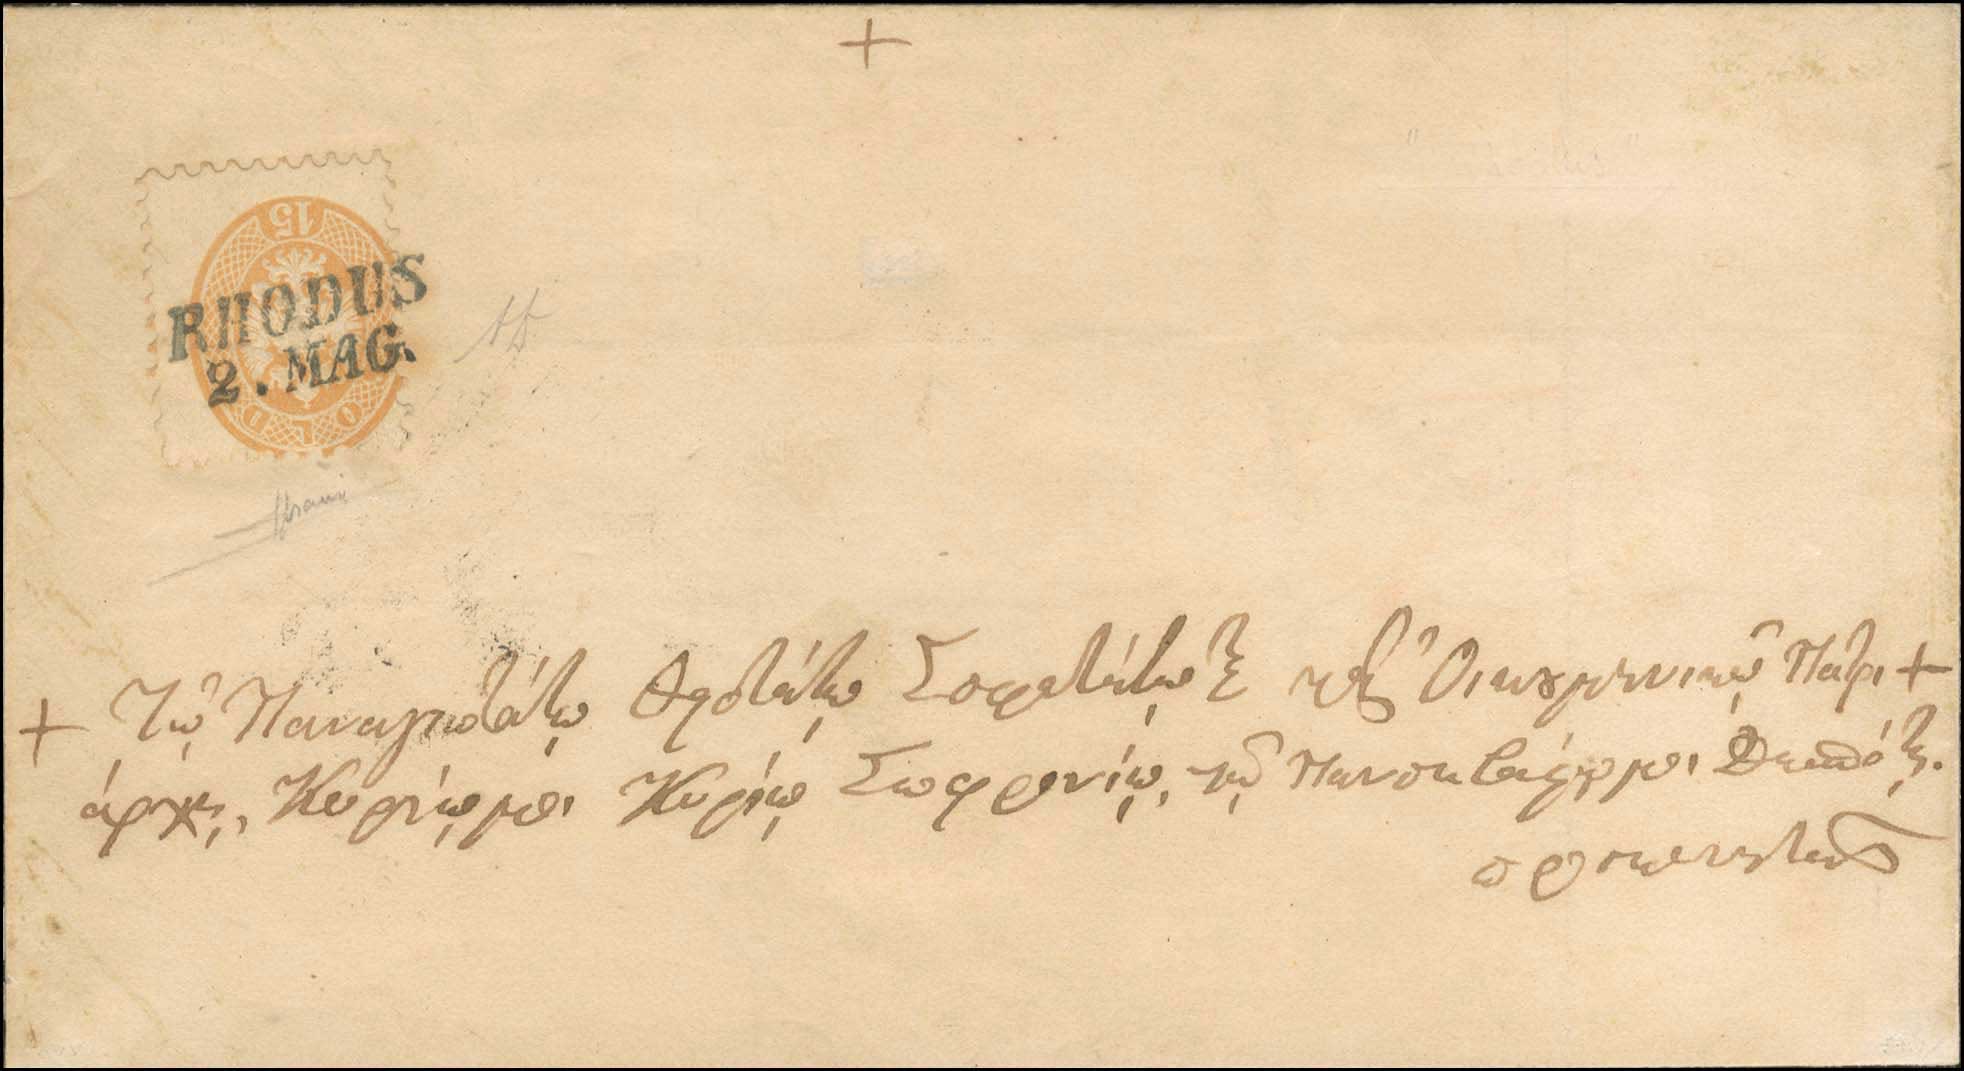 +
15
SOLDI
RHODUS
2. MAG.
+ Τῷ Παναγιωτάτῳ Θειοτάτῳ Σοφωτάτῳ τε καὶ Οἰκουμενικῷ Πατρι +
άρχῃ, Κυρίῳ μοι Κυρίῳ Σωφρονίῳ, τῷ Πανσεβάστῳ μοι Δεσπότῃ.
προσκυνητῶς